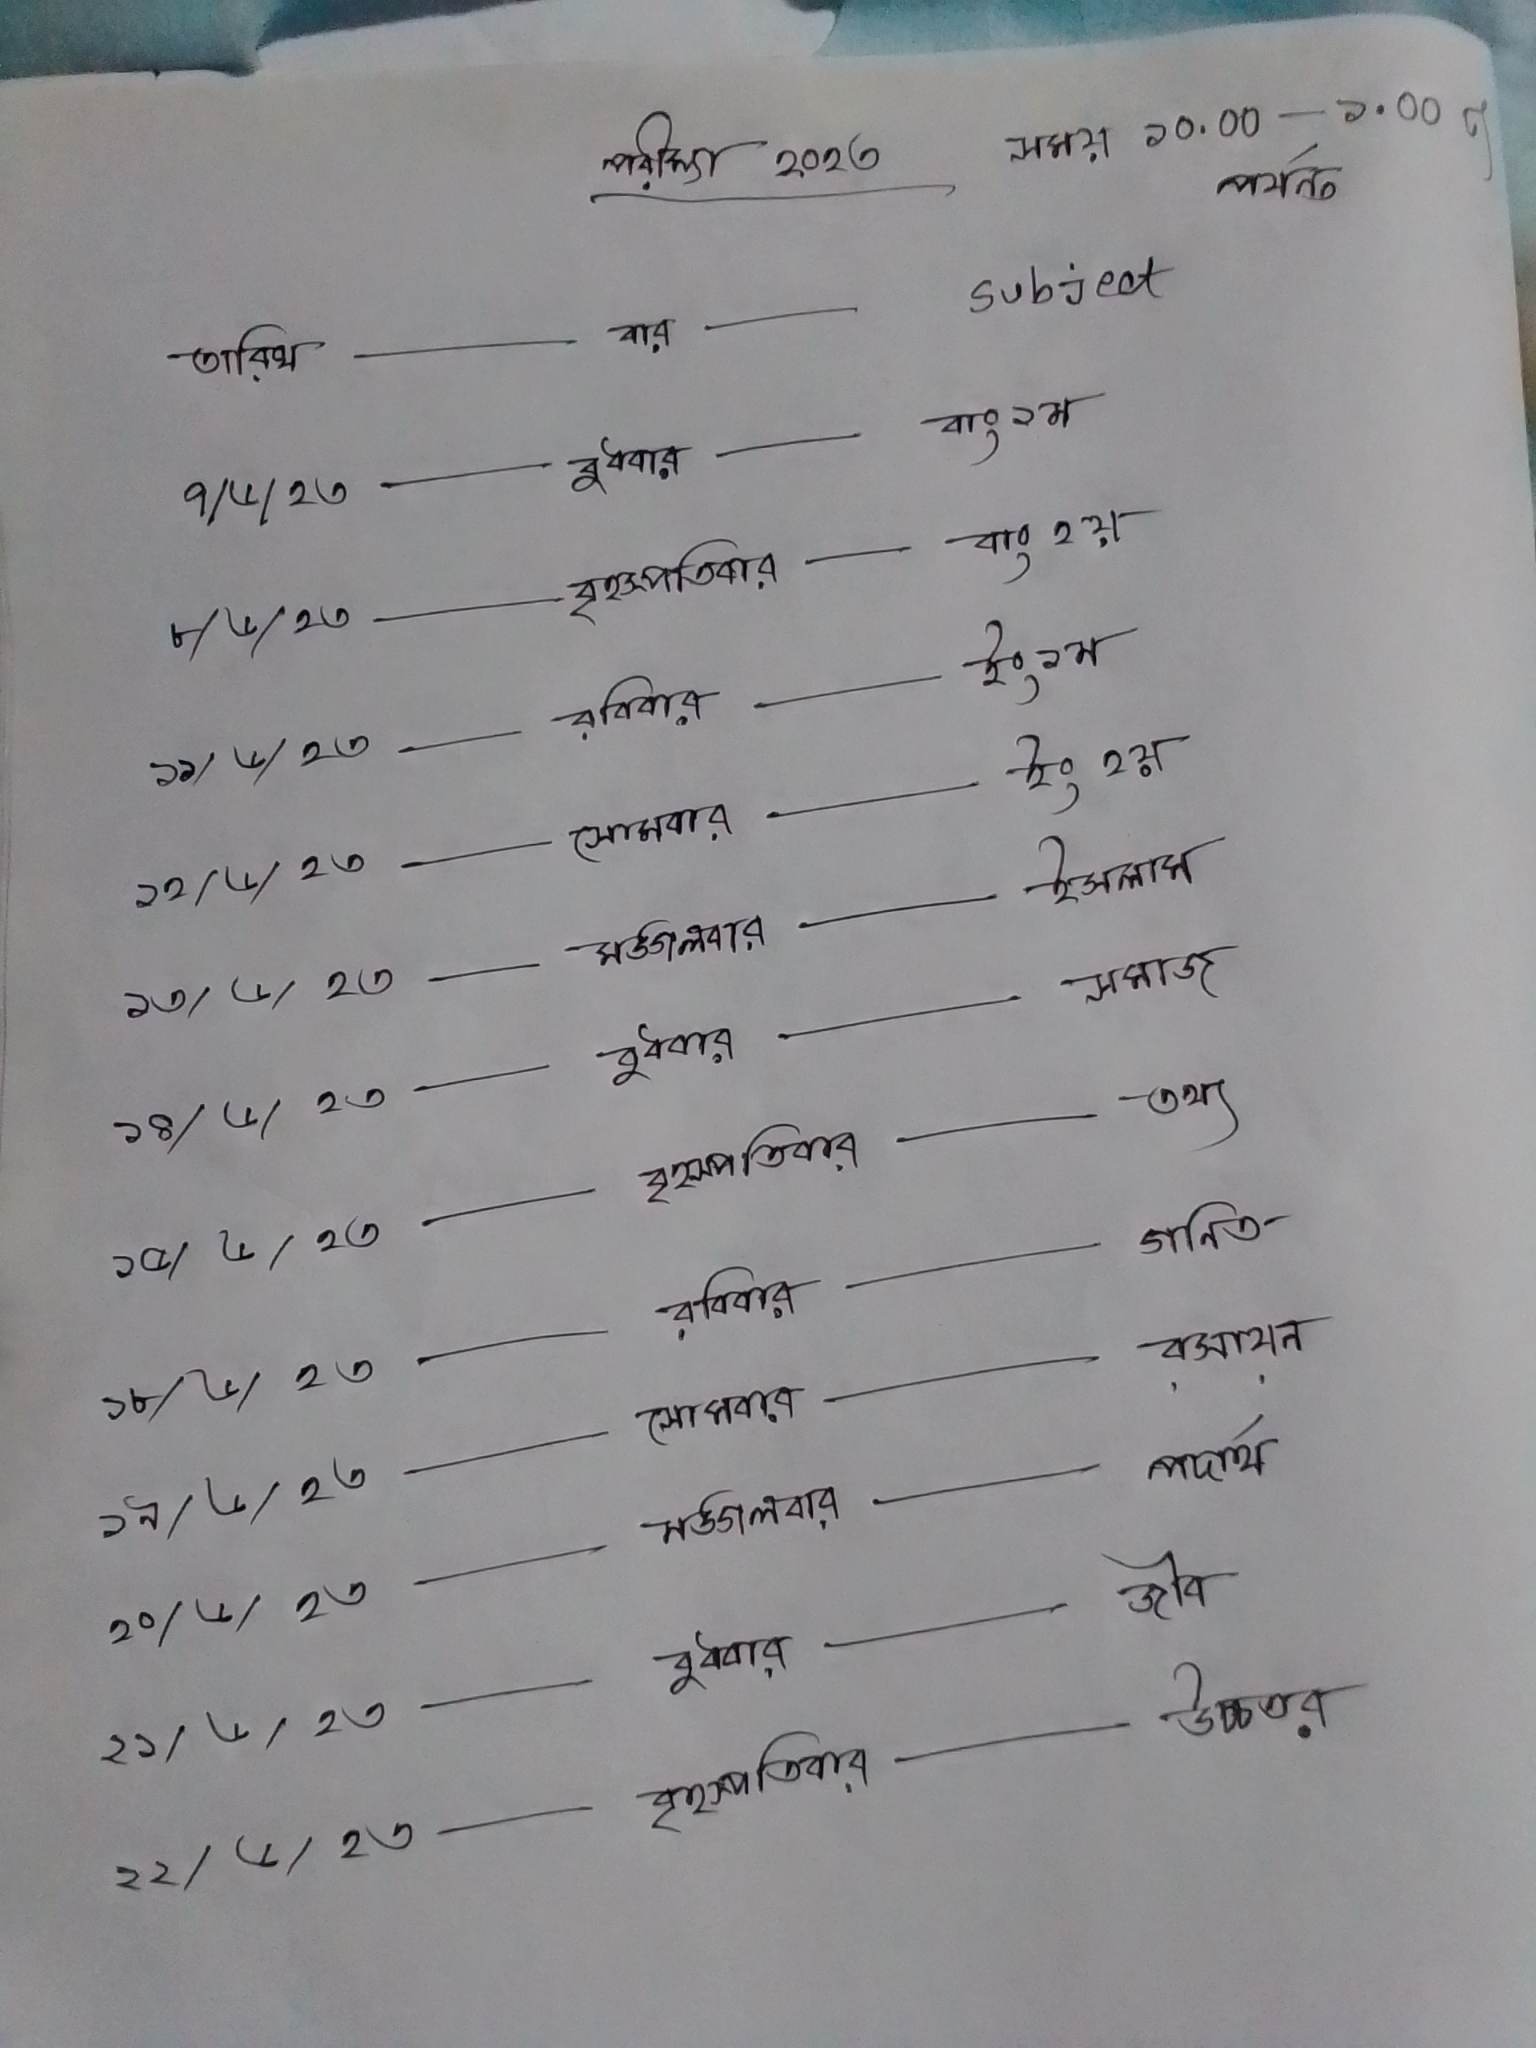 পরীক্ষা ২০২৩ সময় ১০.00 – ১.00
পর্যন্ত
তারিখ — বার — subject
৭/৬/২৩ — বুধবার — বাং ১ম
৮/৬/২৩ — বৃহস্পতিবার — বাং ২য়
১১/৬/২৩ — রবিবার — ইং ১ম
১২/৬/২৩ — সোমবার — ইং ২য়
১৩/৬/২৩ — মঙ্গলবার — ইসলাম
১৪/৬/২৩ — বুধবার — সমাজ
১৫/৬/২৩ — বৃহস্পতিবার — তথ্য
১৮/৬/২৩ — রবিবার — গনিত
১৯/৬/২৩ — সোমবার — রসায়ন
২০/৬/২৩ — মঙ্গলবার — পদার্থ
২১/৬/২৩ — বুধবার — জীব
২২/৬/২৩ — বৃহস্পতিবার — উচ্চতর